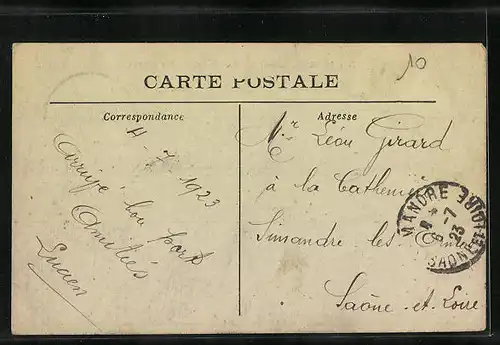 10
CARTE POSTALE
Correspondance
Adresse
4 - 7 1923
Arrivé bon port
Amitiés
Lucien
Mr Léon Girard
à la
Simandre les
Saône-et-Loire
MANDRE
8-7
23
SAONE-ET-LOIRE